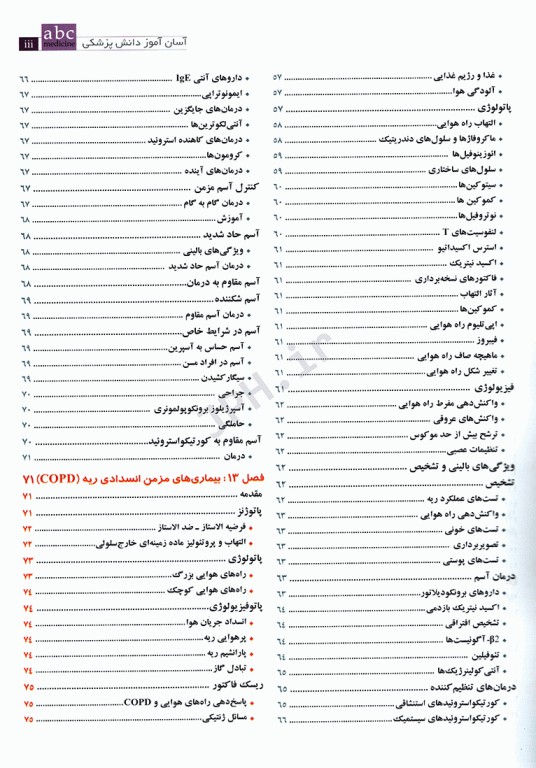 iii abc medicine آسان آموز دانش پزشکی
• غذا و رژیم غذایی ۵۷
• آلودگی هوا ۵۷
پاتولوژی ۵۷
• التهاب راه هوایی ۵۸
• ماکروفاژها و سلول‌های دندریتیک ۵۸
• ائوزینوفیل‌ها ۵۹
• سلول‌های ساختاری ۵۹
• سیتوکین‌ها ۶۰
• کموکین ها ۶۰
• نوتروفیل‌ها ۶۰
• لنفوسیت‌های T ۶۰
• استرس اکسیداتیو ۶۱
• اکسید نیتریک ۶۱
• فاکتورهای نسخه‌برداری ۶۱
• آثار التهاب ۶۱
• کموکین‌ها ۶۱
• اپی‌تلیوم راه هوایی ۶۱
• فیبروز ۶۱
• ماهیچه صاف راه هوایی ۶۱
• تغییر شکل راه هوایی ۶۱
فیزیولوژی ۶۱
• واکنش‌دهی مفرط راه هوایی ۶۲
• واکنش‌های عروقی ۶۲
• ترشح بیش از حد موکوس ۶۲
• تنظیمات عصبی ۶۲
ویژگی‌های بالینی و تشخیص ۶۲
تشخیص ۶۲
• تست‌های عملکرد ریه ۶۲
• واکنش‌دهی راه هوایی ۶۳
• تست‌های خونی ۶۳
• تصویربرداری ۶۳
• تست‌های پوستی ۶۳
درمان آسم ۶۳
• داروهای برونکودیلاتور ۶۳
• اکسید نیتریک بازدمی ۶۴
• تشخیص افتراقی ۶۴
• β2-آگونیست‌ها ۶۴
• تئوفیلین ۶۴
• آنتی‌کولینرژیک‌ها ۶۵
درمان‌های تنظیم‌کننده ۶۵
• کورتیکواستروئیدهای استنشاقی ۶۵
• کورتیکواستروئیدهای سیستمیک ۶۶
• داروهای آنتی IgE ۶۶
• ایمونوتراپی ۶۷
• درمان‌های جایگزین ۶۷
• آنتی‌لکوترین‌ها ۶۷
• درمان‌های کاهنده استروئید ۶۷
• کرومون‌ها ۶۷
• درمان‌های آینده ۶۷
کنترل آسم مزمن ۶۷
• درمان گام به گام ۶۷
• آموزش ۶۸
آسم حاد شدید ۶۸
• ویژگی‌های بالینی ۶۸
• درمان آسم حاد شدید ۶۸
آسم مقاوم به درمان ۶۸
آسم شکننده ۶۹
• درمان آسم مقاوم ۶۹
آسم در شرایط خاص ۶۹
• آسم حساس به آسپرین ۶۹
• آسم در افراد مسن ۶۹
• سیگارکشیدن ۶۹
• جراحی ۷۰
• آسپرژیلوز برونکوپولمونری ۷۰
• حاملگی ۷۰
آسم مقاوم به کورتیکواستروئید ۷۰
• درمان ۷۱
فصل ۱۳: بیماری‌های مزمن انسدادی ریه (COPD) ۷۱
مقدمه ۷۱
پاتوژنز ۷۱
• فرضیه الاستاز ـ ضد الاستاز ۷۲
• التهاب و پروتئولیز ماده زمینه‌ای خارج‌سلولی ۷۲
پاتولوژی ۷۳
• راه‌های هوایی بزرگ ۷۳
• راه‌های هوایی کوچک ۷۴
پاتوفیزیولوژی ۷۴
• انسداد جریان هوا ۷۴
• پرهوایی ریه ۷۴
• پارانشیم ریه ۷۴
• تبادل گاز ۷۴
ریسک فاکتور ۷۵
• پاسخ‌دهی راه‌های هوایی و COPD ۷۵
• مسائل ژنتیکی ۷۵